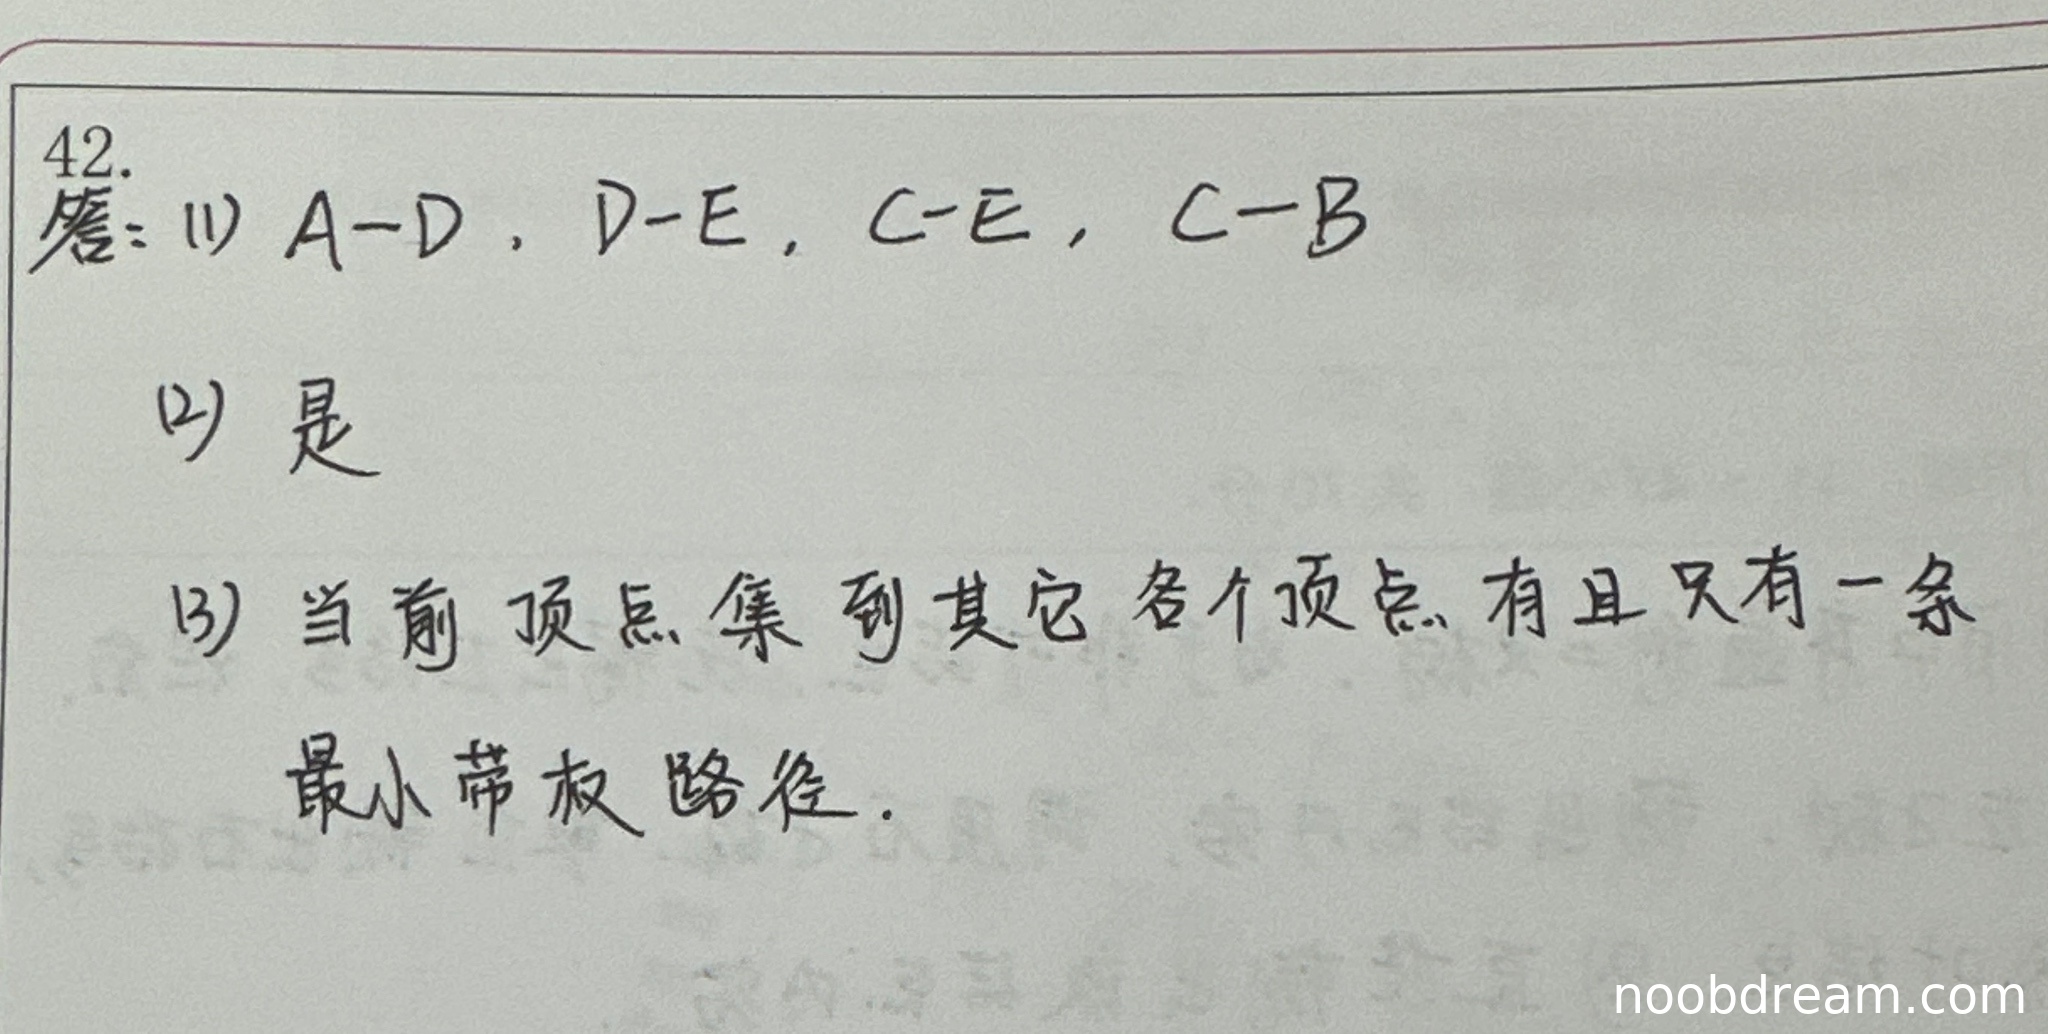 42.
答：(1) A-D , D-E , C-E , C-B
(2) 是
(3) 当前顶点集到其它各个顶点有且只有一条
最小带权路径.
noobdream.com